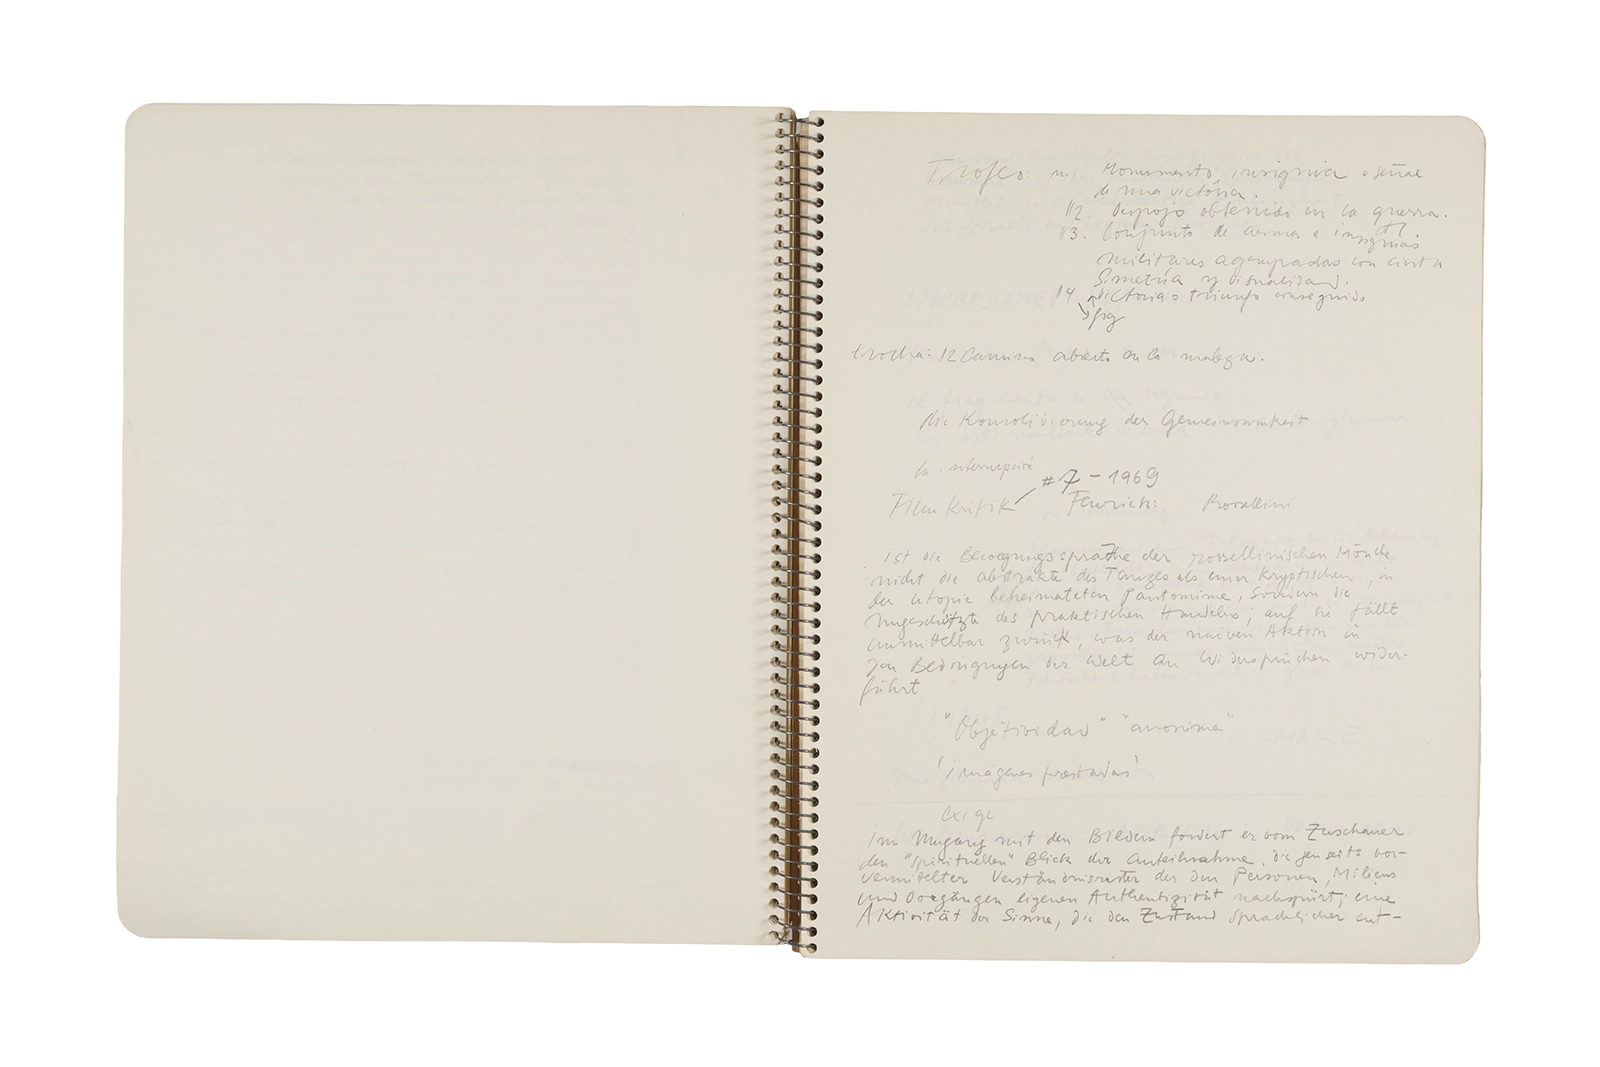 Trofeo: m. Monumento, insignia o señal
de una victória.
//2. Despojo obtenido en la guerra.
//3. Conjunto de armas e insignias
militares agrupadas con cierta
Simetría y visualidad.
//4 Victoria o triunfo conseguido
fig
trocha: //2 Camino abierto en la maleza.
die Konsolidierung der Gemeinsamkeit
la interrupción
#7 - 1969
Filmkritik Rossellini
ist die Bewegungssprache der rossellinischen Mönche
nicht die abstrakte des Tanzes als einer Kryptischen, in
der Utopie beheimateten Pantomime, sondern die
ungeschützte des praktischen Handelns; auf sie fällt
unmittelbar zurück, was der naiven Aktion in
den Bedingungen der Welt an Widersprüchen wider-
fährt
"Objetividad" "anonima"
'imágenes prestadas'
exige
Im Umgang mit den Bildern fordert er vom Zuschauer
den "spirituellen" Blick der Anteilnahme, die jenseits vor-
vermittelter Verständnisraster der den Personen, Milieus
und Vorgängen eigenen Authentizität nachspürt; eine
Aktivität der Sinne, die den Zustand sprachlicher ent-